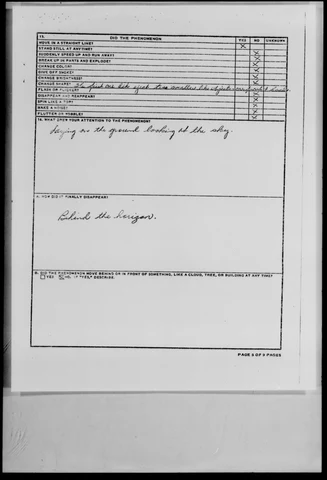 13. DID THE PHENOMENON YES NO UNKNOWN
MOVE IN A STRAIGHT LINE? X
STAND STILL AT ANYTIME? X
SUDDENLY SPEED UP AND RUN AWAY? X
BREAK UP IN PARTS AND EXPLODE? X
CHANGE COLOR? X
GIVE OFF SMOKE? X
CHANGE BRIGHTNESS? X
CHANGE SHAPE? the first one like
FLASH OR FLICKER? X
DISAPPEAR AND REAPPEAR? X
SPIN LIKE A TOP? X
MAKE A NOISE? X
FLUTTER OR WOBBLE? X
14. WHAT DREW YOUR ATTENTION TO THE PHENOMENON?
Laying on the ground looking at the sky.
A. HOW DID IT FINALLY DISAPPEAR?
Behind the horizon.
B. DID THE PHENOMENON MOVE BEHIND OR IN FRONT OF SOMETHING, LIKE A CLOUD, TREE, OR BUILDING AT ANY TIME?
YES NO. IF "YES," DESCRIBE.
PAGE 5 OF 9 PAGES